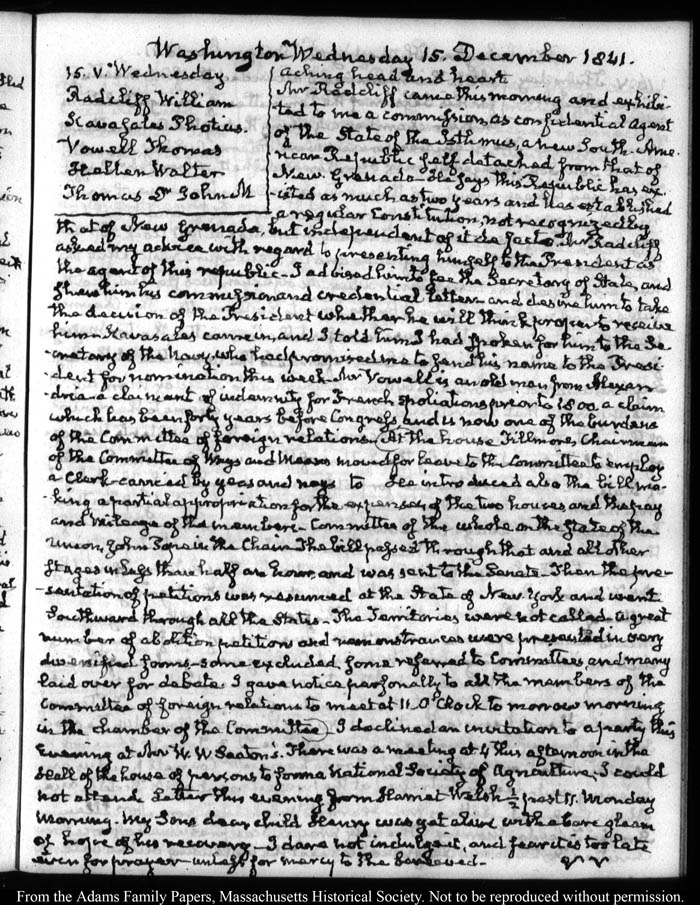 Washington Wednesday 15. December 1841.
15. V. Wednesday
Radcliff William
Kavasales Photius.
Vowell Thomas
Hellen Walter
Thomas Dr John M
Aching head and heart
Mr Radcliff came this morning and exhibi-
ted to me a commission as confidential Agent
of the State of the Isthmus, a new South-Ame-
rican Republic self detached from that of
New Grenada. He says this Republic has ex-
isted as much as two years and has established
a regular Constitution, not recognized by
that of New Grenada, but independent of it de facto. Mr Radcliff
asked my advice with regard to presenting himself to the President as
the agent of this republic. I advised him to see the Secretary of State, and
shew him his commission and credential letter and desire him to take
the decision of the President whether he will think proper to receive
him. Kavasales came in, and I told him I had spoken for him to the Se-
cretary of the Navy, who had promised me to send his name to the Presi-
dent for nomination this week. Mr Vowell is an old man from Alexan-
dria a claimant of indemnity for French spoliations prior to 1800. a claim
which has been forty years before Congress, and is now one of the burdens
of the Committee of foreign relations. At the house Fillmore, Chairman
of the Committee of Ways and Means moved for leave to the Committee to employ
a Clerk carried by yeas and nays to He introduced also the bill ma-
king a partial appropriation for the expenses of the two houses and the pay
and mileage of the members. Committee of the whole on the State of the
Union, John in the Chair. The bill passed through that and all other
stages in less than half an hour, and was sent to the Senate. Then the pre-
sentation of petitions was resumed at the State of New York and went
Southward through all the States. The Territories were not called. A great
number of abolition petitions and remonstrances were presented in very
diversified forms. some excluded, some referred to Committees, and many
laid over for debate. I gave notice personally to all the members of the
Committee of foreign relations to meet at 11. O'Clock to morrow morning
in the chamber of the Committee. I declined an invitation to a party this
Evening at Mr W. W. Seaton's. There was a meeting at 4 this afternoon in the
Hall of the house of persons to form a National Society of Agriculture; I could
not attend. Letter this evening from Harriet Welsh ½ past 11. Monday
Morning. My Sons dear child Henry was yet alive with a bare gleam
of hope of his recovery. I dare not indulge it, and fear it is too late
even for prayer unless for mercy to the bereaved.
From the Adams Family Papers, Massachusetts Historical Society. Not to be reproduced without permission.